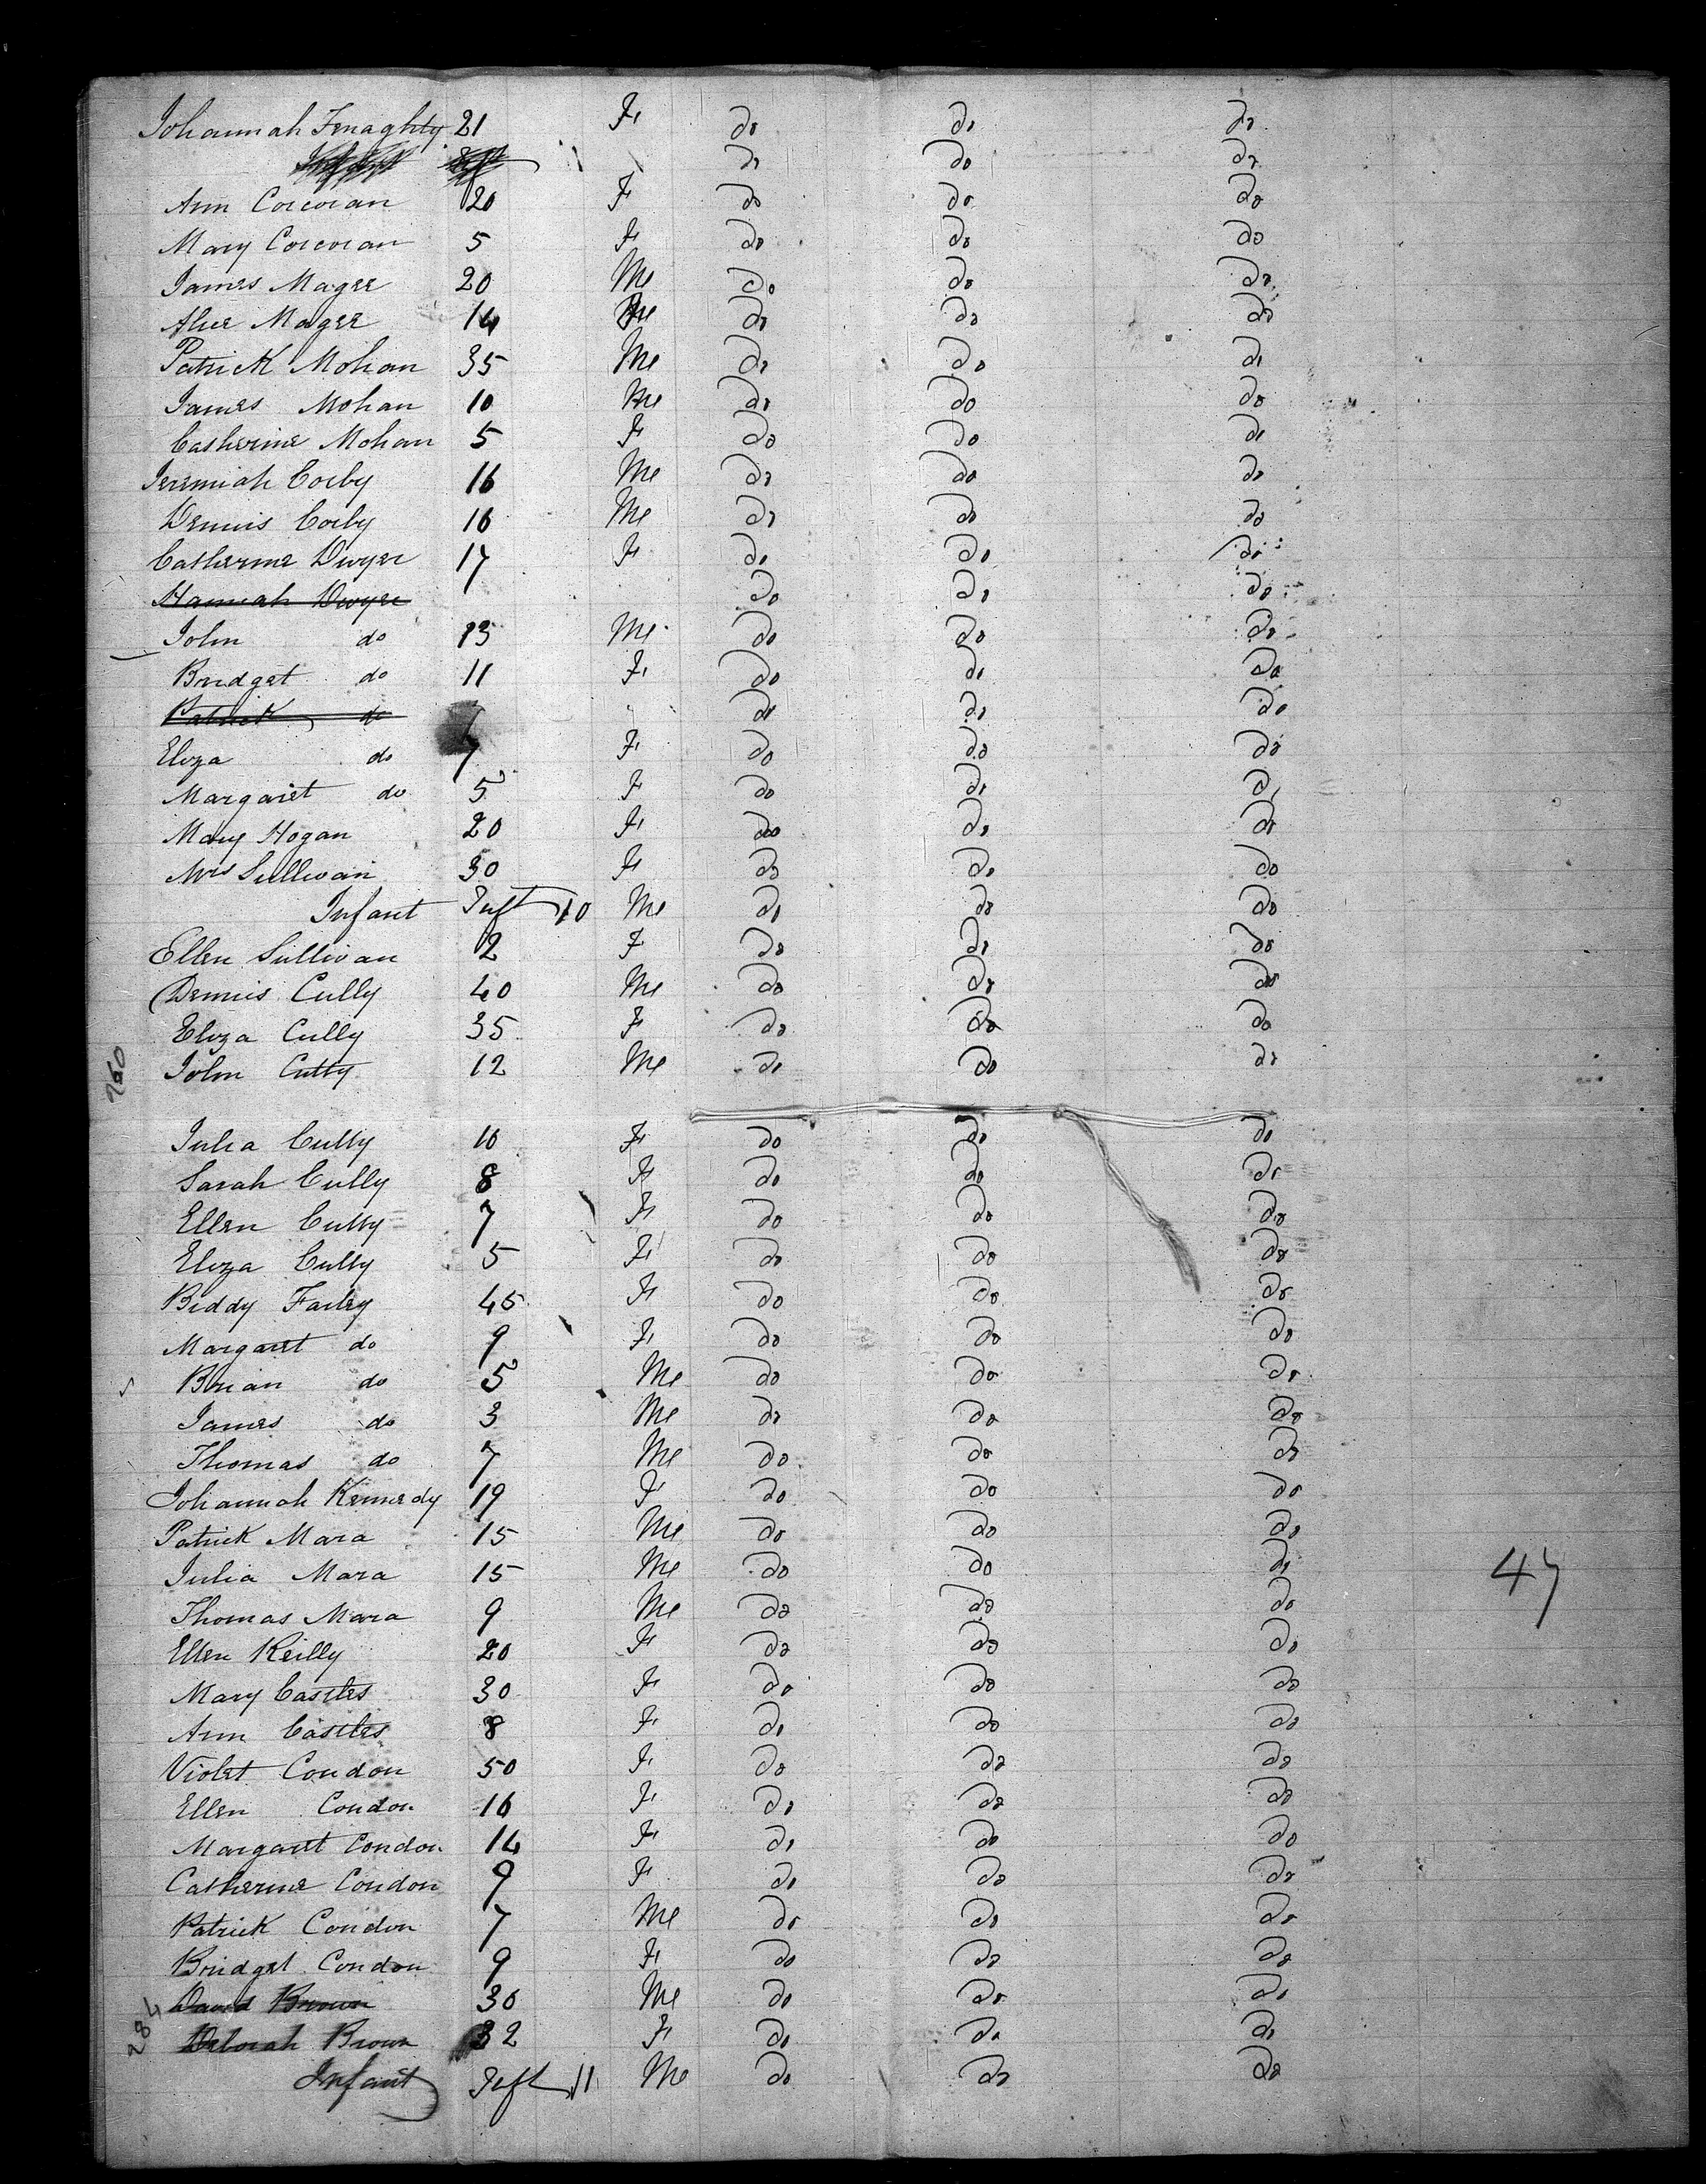 Johannah Fenaghty 21 F. do do do
do do do
Ann Corcoran 20 F do do do
Mary Corcoran 5 F do do do
James Magee 20 Me do do do
Alice Magee 14 do do do
Patrick Mohan 35 Me do do do
James Mohan 10 Me do do do
Catherine Mohan 5 F do do do
Jeremiah Corby 16 Me do do do
Dennis Corby 16 Me do do do
Catherine Dwyer 17 F do do do
Hannah Dwyer do do do
John do 13 Me do do do
Bridget do 11 F. do do do
Patrick do do do do
Eliza do 7 F do do do
Margaret do 5 F do do do
Mary Hogan 20 F. do do do
Mrs Sullivan 30 F do do do
Infant Inft 10 Me do do do
Ellen Sullivan 2 F do do do
Dennis Cully 40 Me do do do
Eliza Cully 35 F do do do
260 John Cutty 12 Me do do do
Julia Cully 10 F do do do
Sarah Cully 8 F do do do
Ellen Cutty 7 F do do do
Eliza Cully 5 F do do do
Biddy Farley 45 F do do do
Margaret do 9 F. do do do
Brian do 5 Me do do do
James do 3 Me do do do
Thomas do 7 Me do do do
Johannah Kennedy 19 F do do do
Patrick Mara 15 Me do do do
Julia Mara 15 Me do do do 47
Thomas Mara 9 Me do do do
Ellen Reilly 20 F do do do
Mary Castles 30 F do do do
Ann Castles 8 F do do do
Violet Condon 50 F do do do
Ellen Condon 16 F. do do do
Margaret Condon 14 F do do do
Catherine Condon 9 F do do do
Patrick Condon 7 Me do do do
Bridget Condon 9 F do do do
David Brown 30 Me do do do
284 Deborah Brown 32 F do do do
Infant Inft 11 Me do do do